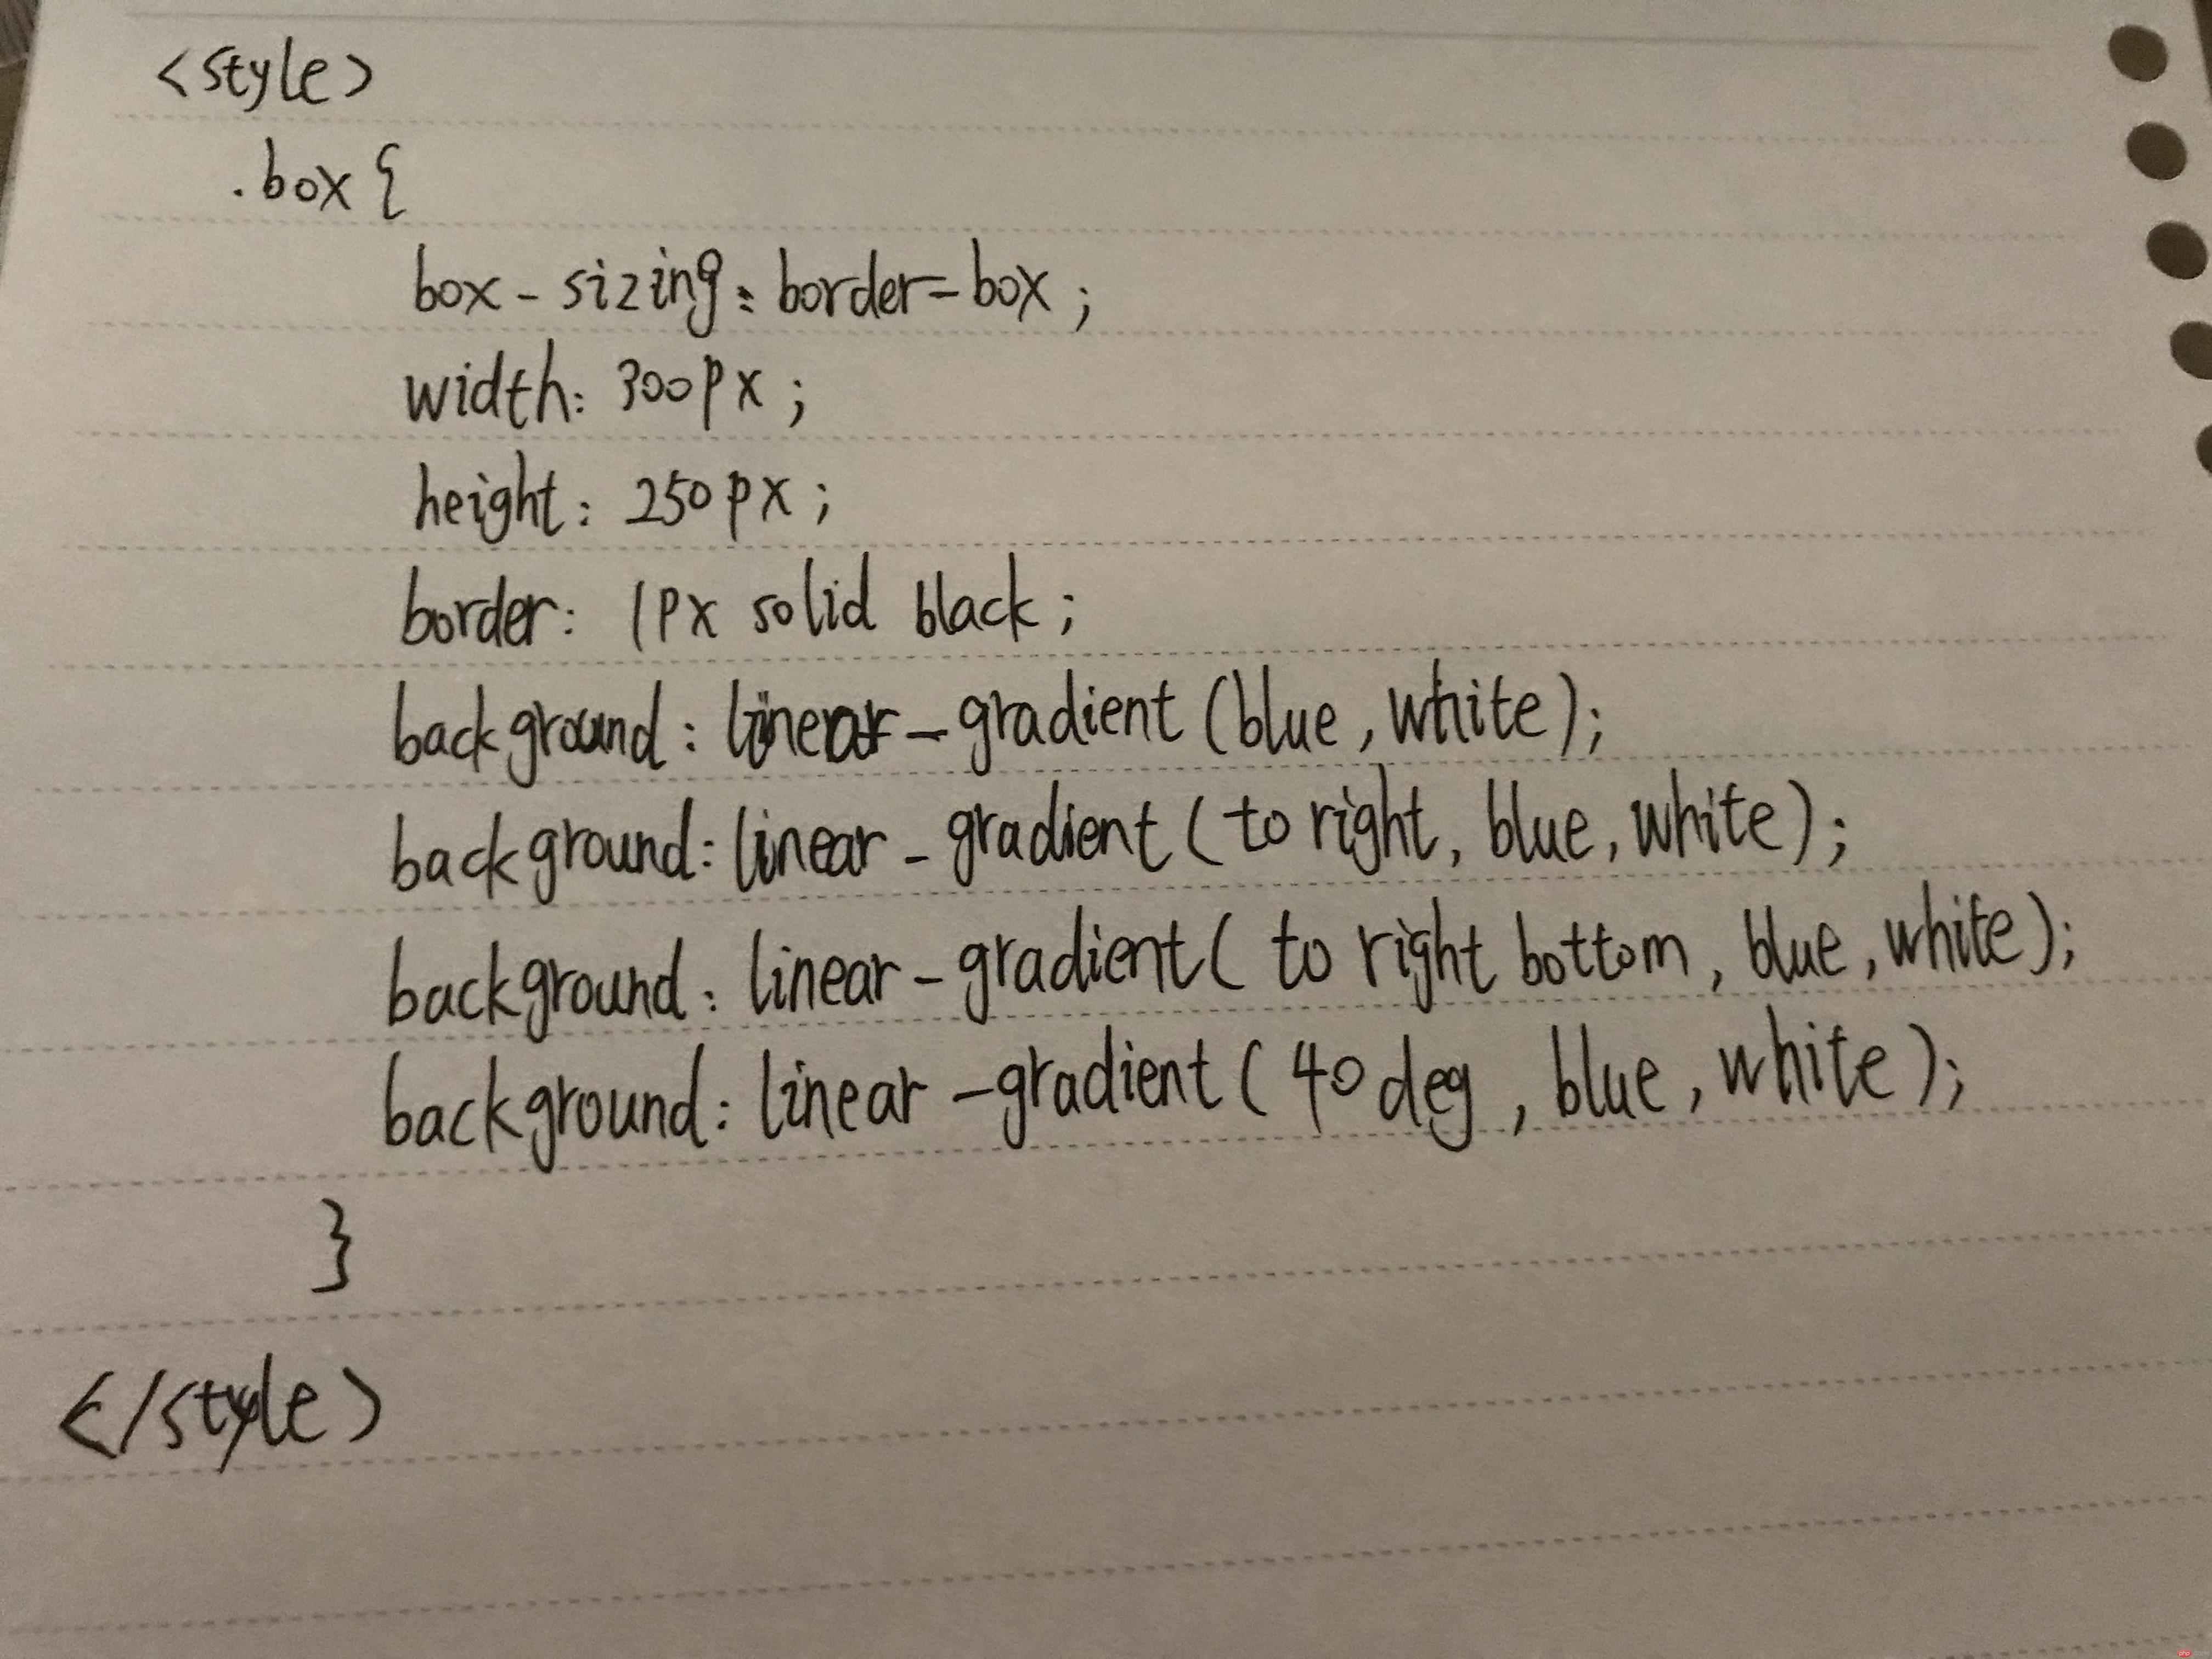 <style>
.box {
box-sizing: border-box;
width: 300px;
height: 250px;
border: 1px solid black;
background: linear-gradient (blue, white);
background: linear-gradient ( to right, blue, white);
background: linear-gradient( to right bottom, blue, white);
background: linear-gradient ( 40deg, blue, white);
}
</style>